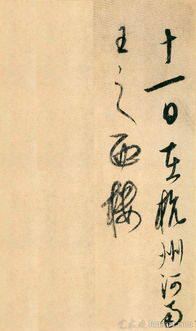 十一日在杭州河南
王之西楼